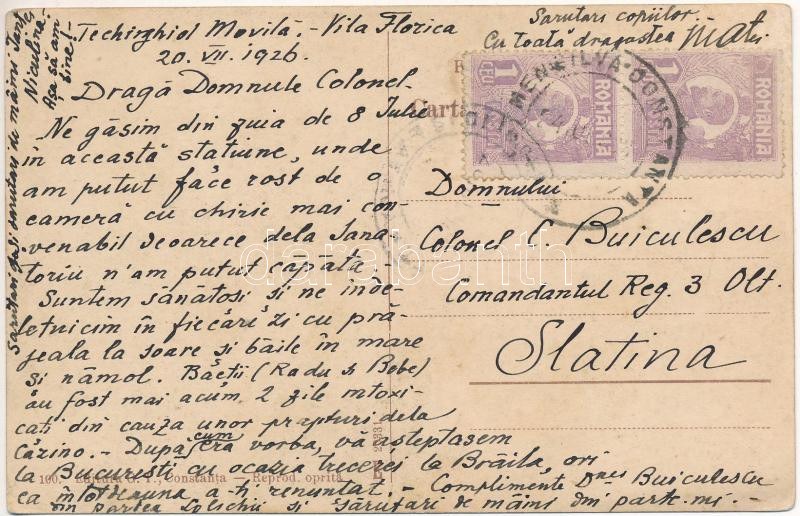 Techirghiol Movilă.- Vila Florica
20. VII. 1926.
Dragă Domnule Colonel.-
Ne găsim din ziua de 8 Iulie
în această stațiune, unde
am putut face rost de o
cameră cu chirie mai con-
venabil deoarece dela Sana-
toriu n'am putut căpăta.-
Suntem sănătoși și ne înde-
letnicim în fiecare zi cu pră-
jeala la soare și băile în mare
și nămol. Băeții (Radu și Bebe)
au fost mai acum 2 zile intoxi-
cați din cauza unor prăjituri dela
Cazino.- După cum era vorba, vă așteptasem
la București cu ocazia trecerei la Brăila, ori
ca întotdeauna a-ți renunțat.- Complimente Dnei Buiculescu
din partea și sărutări de mâini din parte-mi.-
Sărutări de mâini
Niculina.
Așa să am
bine!
Sărutări copiilor
Cu toată dragostea Matei
Carta
1
CEU
ROMANIA
1
ROMANIA
CONSTANTA
Domnului
Colonel C. Buiculescu
Comandantul Reg. 3 Olt.
Slatina
darabanth
100. Editura G. T., Constanța — Reprod. oprită.